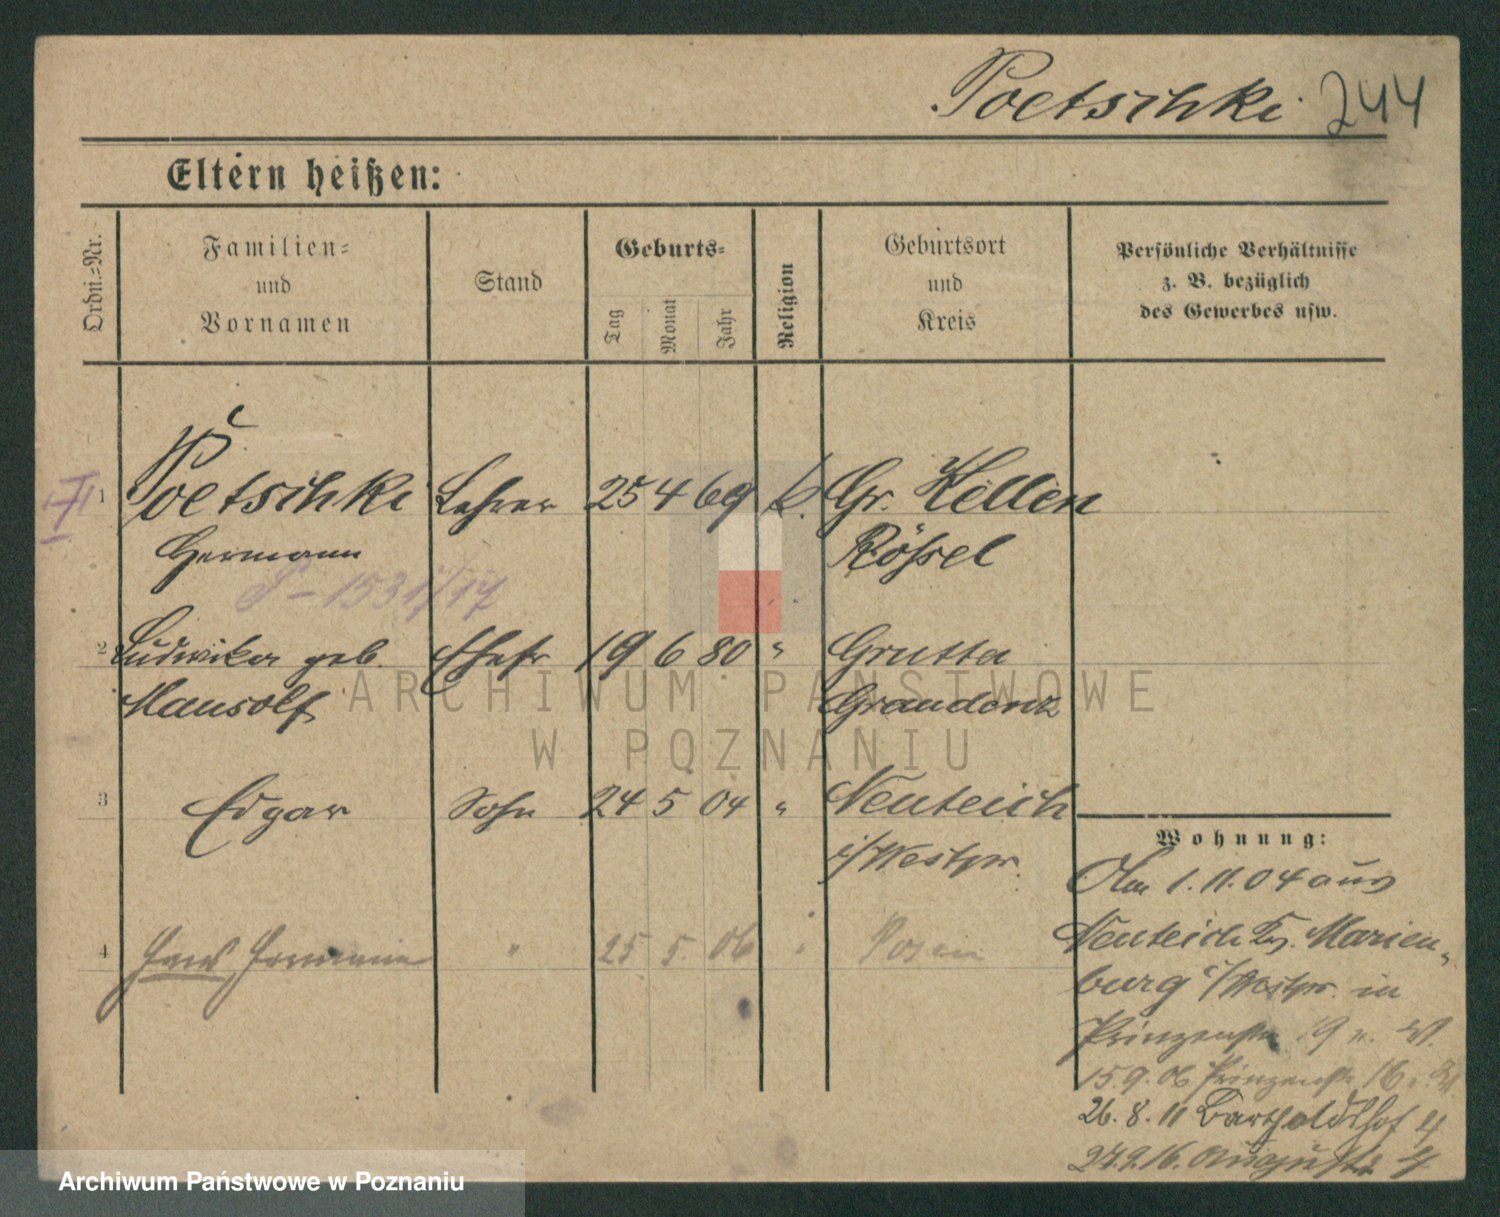 Poetschki 244
Eltern heißen:
Ordn.=Nr.
Familien=
und
Vornamen
Stand
Geburts=
Tag
Monat
Jahr
Religion
Geburtsort
und
Kreis
Persönliche Verhältnisse
z. B. bezüglich
des Gewerbes usw.
1 Poetschki Lehrer 25 4 69 k. Gr. Kellen
Hermann Rössel
P-1531/17
2 Ludwika geb. Ehefr 19 6 80 " Grutta
Mansolf Graudenz
3 Edgar Sohn 24 5 04 " Neuteich
i/Westpr.
4 Hans Hermann " 25 5. 06 " Posen
Wohnung:
Am 1.11.04 aus
Neuteich Kr. Marien-
burg i/Westpr. in
Prinzenstr 19
15.9.06 Prinzenstr 16
26.8.11 Bartholdshof 4
24.2.16. Augustastr 4
ARCHIWUM PAŃSTWOWE
W POZNANIU
Archiwum Państwowe w Poznaniu